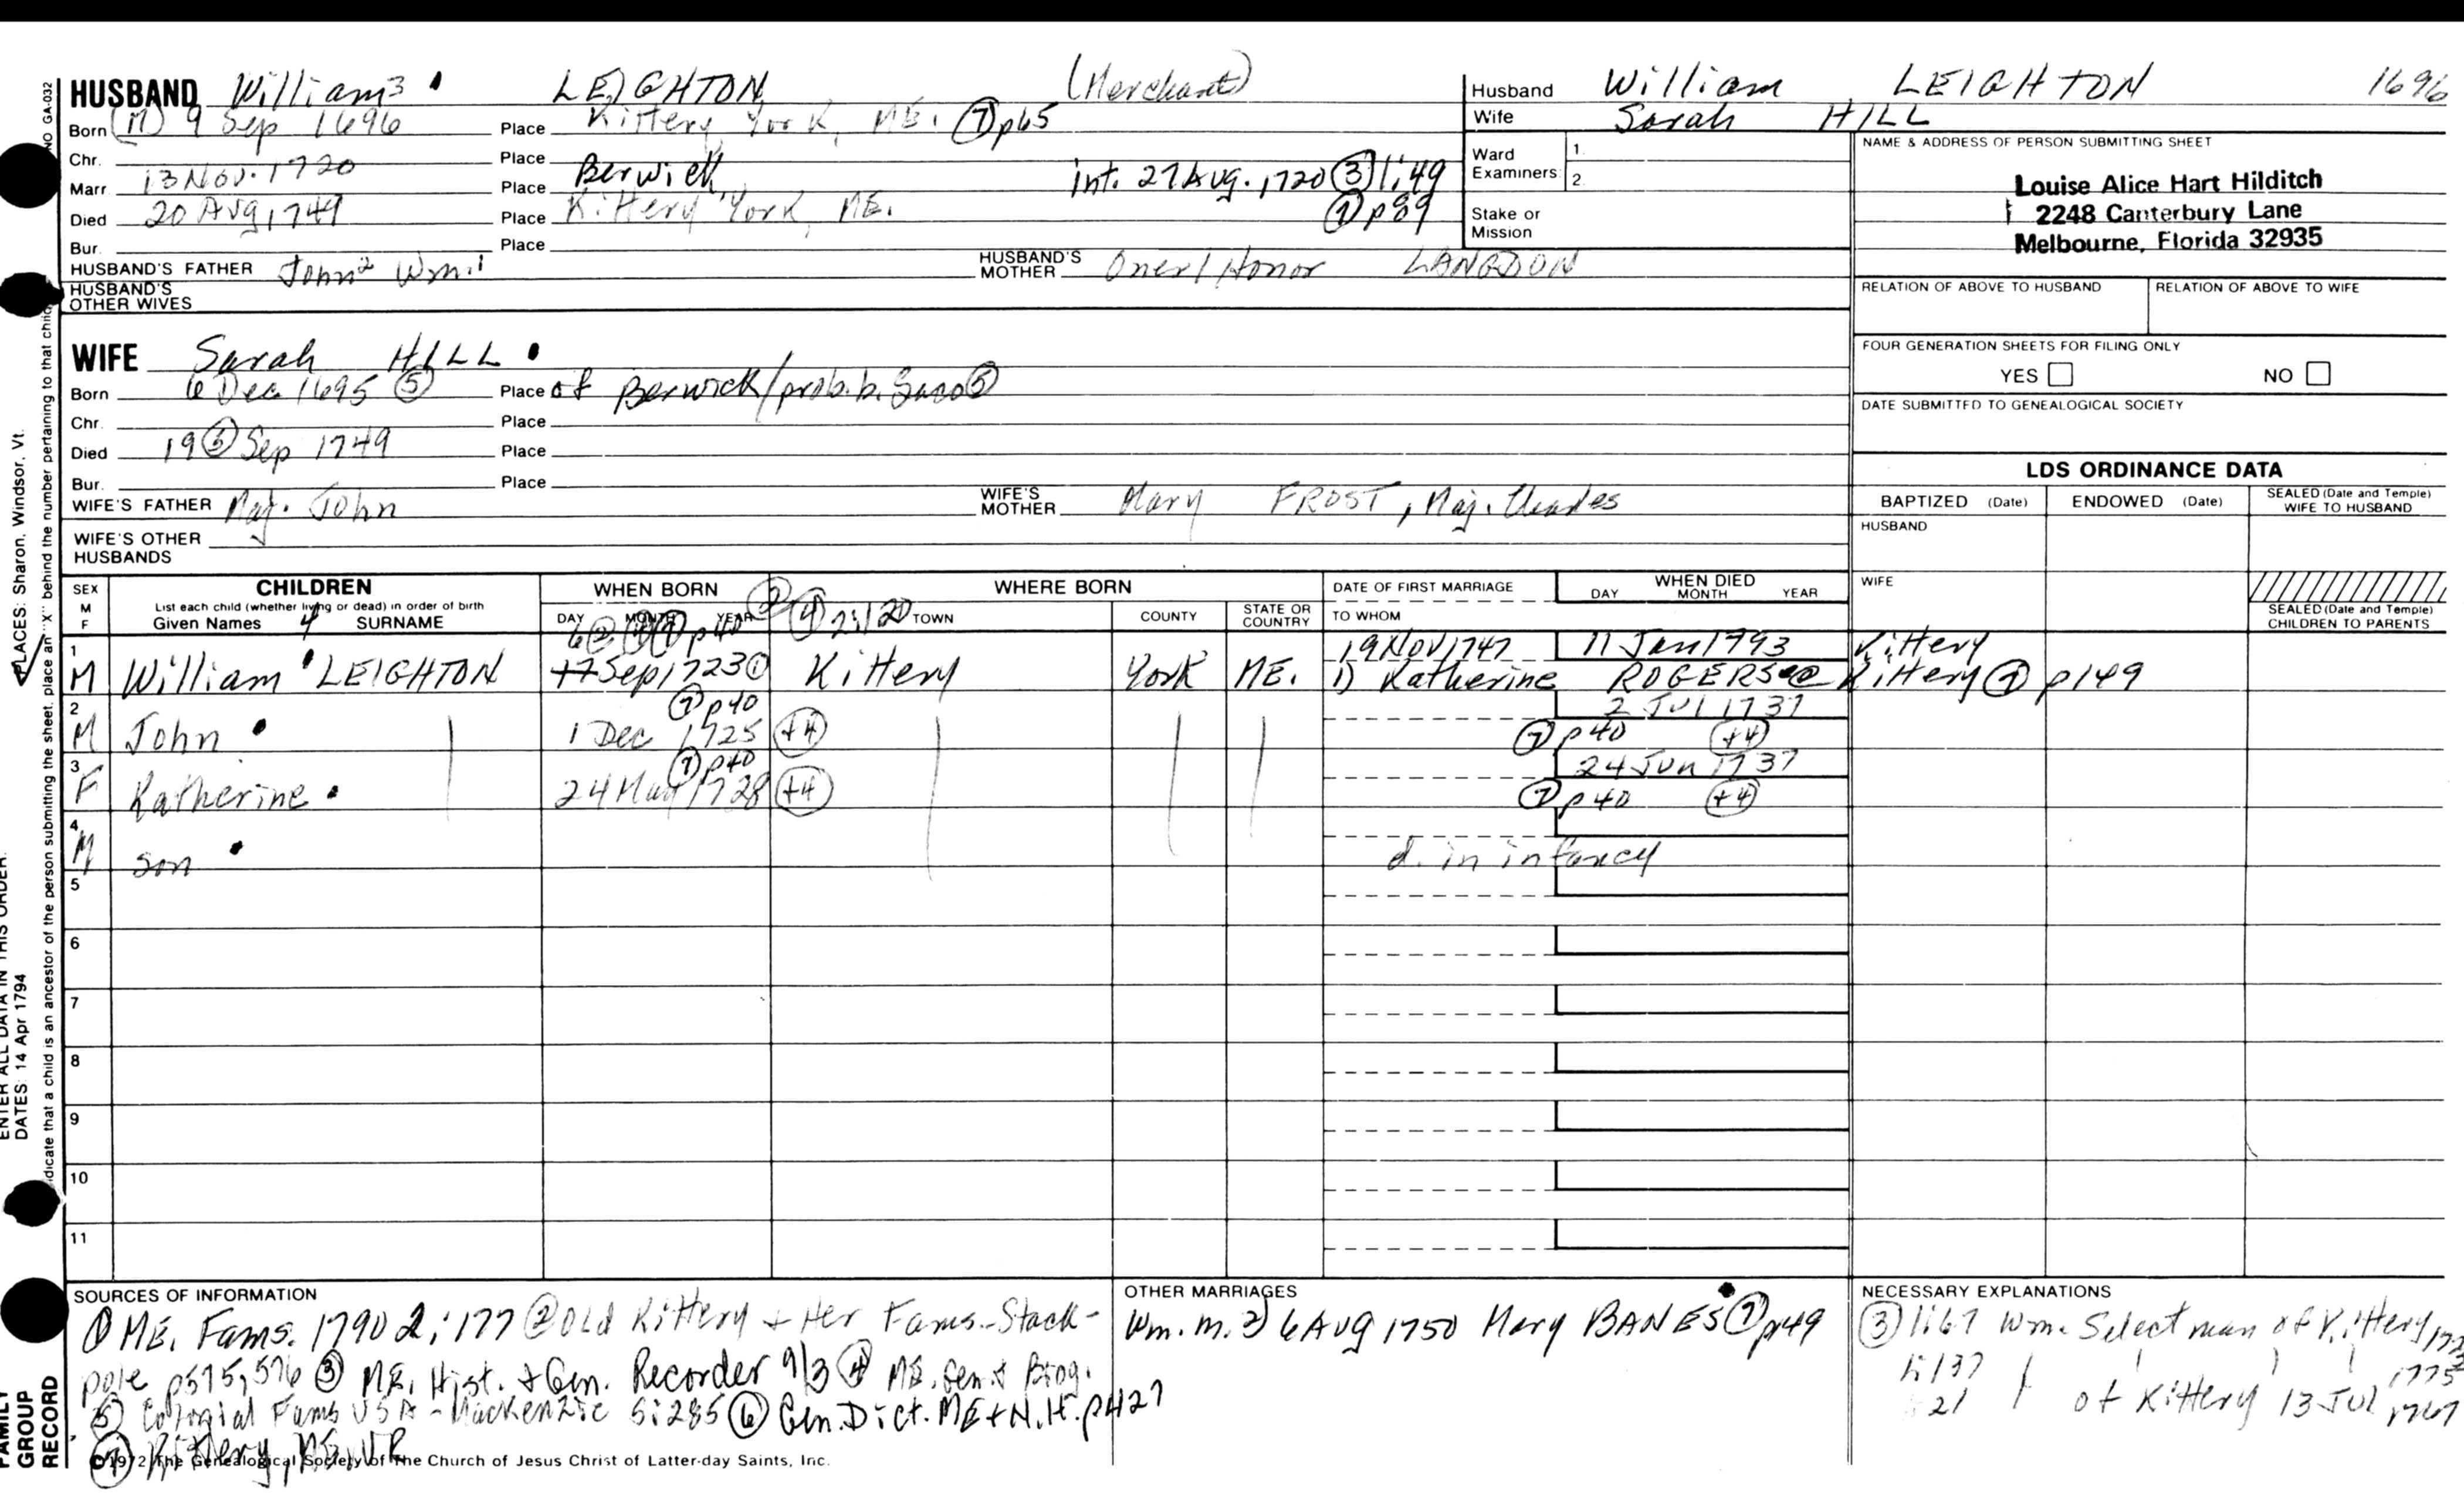 HUSBAND William³ LEIGHTON (Merchant)
Born (M) 9 Sep 1696 Place Kittery York, ME. ⑦ p65
Chr. Place
Marr 13 Nov. 1720 Place Berwick int. 27 Aug. 1720 ③ 1:49
Died 20 Aug 1749 Place Kittery York, ME. ⑦ p89
Bur. Place
HUSBAND'S FATHER John² Wm.¹ HUSBAND'S MOTHER Oner / Honor LANGDON
HUSBAND'S OTHER WIVES
Husband William LEIGHTON 1696
Wife Sarah HILL
Ward Examiners: 1.
2.
Stake or Mission
NAME & ADDRESS OF PERSON SUBMITTING SHEET
Louise Alice Hart Hilditch
2248 Canterbury Lane
Melbourne, Florida 32935
RELATION OF ABOVE TO HUSBAND RELATION OF ABOVE TO WIFE
FOUR GENERATION SHEETS FOR FILING ONLY
YES NO
DATE SUBMITTED TO GENEALOGICAL SOCIETY
WIFE Sarah HILL
Born 6 Dec 1695 ⑤ Place of Berwick/prob. b. Saco ⑤
Chr. Place
Died 19 ⑥ Sep 1749 Place
Bur. Place
WIFE'S FATHER Maj. John WIFE'S MOTHER Mary FROST, Maj. Charles
WIFE'S OTHER HUSBANDS
LDS ORDINANCE DATA
BAPTIZED (Date) ENDOWED (Date) SEALED (Date and Temple) WIFE TO HUSBAND
HUSBAND
WIFE
SEALED (Date and Temple) CHILDREN TO PARENTS
SEX M F CHILDREN WHEN BORN WHERE BORN DATE OF FIRST MARRIAGE WHEN DIED
List each child (whether living or dead) in order of birth
Given Names 4 SURNAME DAY MONTH YEAR TOWN COUNTY STATE OR COUNTRY TO WHOM DAY MONTH YEAR
④ 2:120
p40
19 Nov 1747 11 Jan 1793 Kittery
1 M William LEIGHTON 17 Sep 1723 ① Kittery York ME. 1) Katherine ROGERS Kittery ⑦ p149
⑦ p40 2 Jul 1737
2 M John 1 Dec 1725 (+4) ⑦ p40 (+4)
⑦ p40 24 Jun 1737
3 F Katherine 24 May 1728 (+4) ⑦ p40 (+4)
4 M son d. in infancy
5
6
7
8
9
10
11
SOURCES OF INFORMATION
① ME. Fams. 1790 2:177 ② Old Kittery + Her Fams.-Stack-
pole p575, 576 ③ ME. Hist. + Gen. Recorder 9/3 ④ ME. Gen. + Biog.
⑤ Colonial Fams USA - Mackenzie 5:285 ⑥ Gen. Dict. ME + N.H. p427
⑦ Kittery, ME. VR
©1972 The Genealogical Society of The Church of Jesus Christ of Latter-day Saints, Inc.
OTHER MARRIAGES
Wm. m. 2) 6 Aug 1750 Mary BANES ⑦ p49
NECESSARY EXPLANATIONS
③ 1:67 Wm. Selectman of Kittery
of Kittery 13 Jul 1767
PLACES: Sharon, Windsor, Vt.
ENTER ALL DATA IN THIS ORDER:
DATES: 14 Apr 1794
dicate that a child is an ancestor of the person submitting the sheet, place an "X" behind the number pertaining to that child
NO GA-032
FAMILY GROUP RECORD